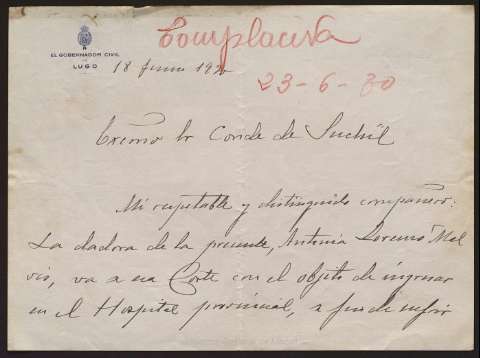 Complacida
EL GOBERNADOR CIVIL
LUGO
18 Junio 1930
23-6-30
Excmo Sr Conde de Suchil
Mi respetable y distinguido compañero:
La dadora de la presente, Antonia Lorenzo Mel
vis, va a esa Corte con el objeto de ingresar
en el Hospital provincial, a fin de sufrir